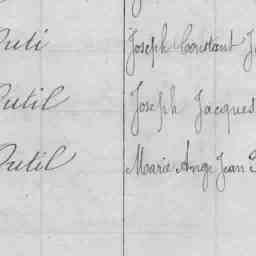 Joseph Constant
Dutil Joseph Jacques
Dutil Marie Ange Jean